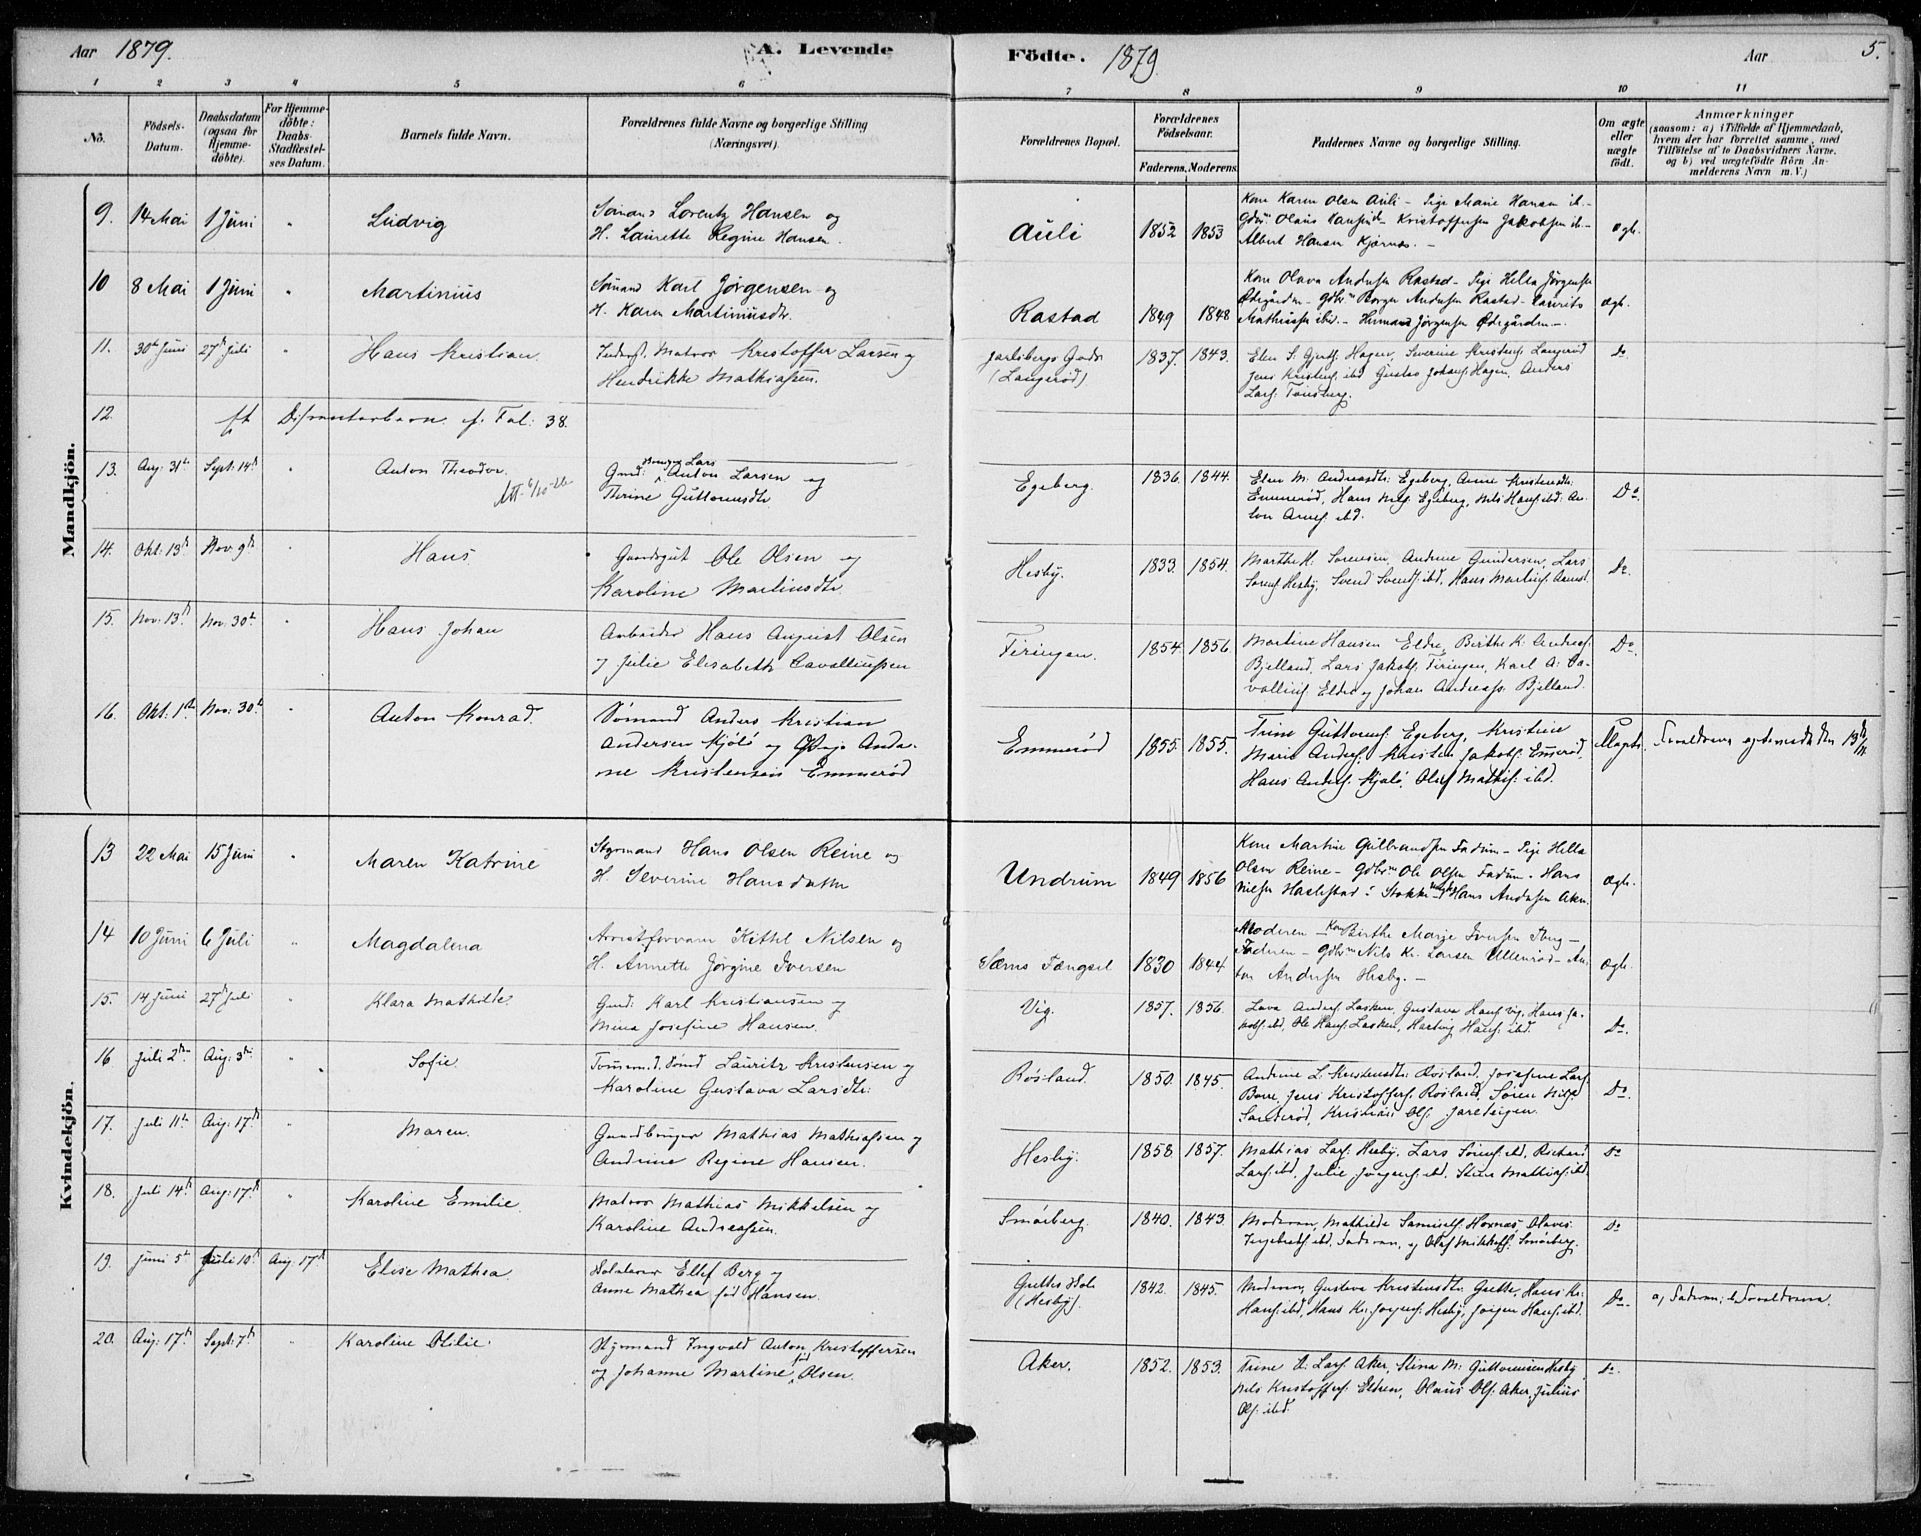 Aar 1879. A. Levende
Födte. 1879. Aar 5.
1 2 3 4 5 6 7 8 9 10 11
No. Födsels-Datum. Daabsdatum (ogsaa for Hjemme-döbte). For Hjemme-döbte: Daabs-Stadfæstel-ses Datum. Barnets fulde Navn. Forældrenes fulde Navne og borgerlige Stilling (Næringsvei). Forældrenes Bopæl. Forældrenes Födselsaar. Faderens. Moderens. Faddernes Navne og borgerlige Stilling. Om ægte eller uægte födt. Anmærkninger
(saasom: a) i Tilfælde af Hjemmedaab,
hvem der har forrettet samme, med
Tilföielse af to Daabsvidners Navne,
og b) ved uægtefödte Börn An-
melderens Navn m. V.)
Mandkjön.
9. 14 Mai 1 Juni " Ludvig
Sømand Lorentz Hansen og
H. Laurette Regine Hansen.
Auli 1852 1853
Kone Karen Olsen Auli - Pige Marie Hansen ib. -
Albert Hansen Kjærnes. -
10 8 Mai 1 Juni " Martinius
Sømand Karl Jørgensen og
H. Karen Martiniusdtr.
Rastad 1849 1848
Kone Olava Andersen Rastad - Pige Helda Jørgensen
Ødegården - Gdbr. Borger Andersen Rastad - Laurits
Mathissen ibd. - Herman Jørgensen Ødegården -. ægte.
11. 30te Juni 27de Juli " Hans Kristian.
Inderst. Matros Kristoffer Larsen og
Hendrikke Mathiassen.
Jarlsbergs Gods
(Langerød)
1837. 1843.
Elen S. Gjertf. Hagen, Severine Kristensf. Langerød
Jens Kristensf. ibd Gustav Johansf. Hagen, Anders
Larsf. Tønsberg.
Do
12. Dissenterbarn. cf. Fol: 38.
13. Aug: 31te Sept: 14de " Anton Theodor.
Lars
Gmd: Anton Larsen og
Thrine Guttormsdtr
Egeberg. 1836. 1844.
Elen M. Andreasdtr: Egeberg, Anne Kristensdtr:
Emmerød, Hans Nilsf. Egeberg, Nils Hansf. ibd. An-
ton Arnesf. ibd.
Do.
14. Okt: 13de Nov. 9de " Hans
Ole Olsen og
Karoline Martinsdtr
Hesby. 1833. 1854.
Marthe H. Sørensen, Andrine Gundersen, Lars
Sørensf. Hesby, Svend Svendsf. ibd, Hans Martinsf.
Do.
15. Nov: 13de Nov: 30te " Hans Johan
Arbeider Hans August Olsen
og Julie Elisabeth Cavalliussen
Feringen. 1854. 1856.
Martine Hansen Eldre, Birthe K. Andreasf.
Bjelland, Lars Jakobsf. Feringen, Karl A: Ca-
valliusf. Eldre og Johan Andreasf. Bjelland.
Do.
16. Okt: 1ste Nov: 30te " Anton Konrad.
Sømand Anders Kristian
Andersen Kjølø og Pige Anda-
ne Kristensen Emmerød
Emmerød 1855. 1855.
Trine Guttormsf. Egeberg, Kristine
Marie Andersf. Kristen Jakobsf. Emmerød,
Hans Andersf. Kjølø, Oluf Mathisf. ibd.
Uægte.
Kvindekjön.
13 22 Mai 15 Juni " Maren Katrine
Styrmand Hans Olsen Reine og
H. Severine Hansdatter
Undrum 1849 1856
Kone Martine Gulbrandsen Fadum - Pige Hella
Olsen Reine - Gdbr. Ole Olsen Fadum - Hans
Nilsen Haslestad i Stokke og Hans Andersen Aker.
ægte.
14 10 Juni 6 Juli " Magdalena
Arrestforvarer Kittil Nilsen og
H. Annette Jørgine Iversen
Sæms Fængsel 1830 1844
Moderen - Kone Birthe Marie Iversen Tbrg -
Faderen - Gdbr. Nils Kr. Larsen Ullerød - An-
ton Andersen Hesby. -
ægte.
15. 14 Juni 27de Juli Klara Mathilde.
Gmd: Karl Kristiansen og
Mina Josefine Hansen.
Vig. 1857. 1856.
Lava Andersf. Lasken, Gustava Hansf. Vig, Hans Ja-
kobsf. ibd, Ole Hansf. Lasken, Hartvig Hansf. ibd.
Do.
16 Juli 2den Aug: 3de " Sofie.
Tømm. & Sømd Lauritz Kristensen og
Karoline Gustava Larsdtr:
Røsland. 1850. 1845.
Andrine L. Kristensdtr: Røsland, Josefine Larsf.
Borre, Jens Kristoffersf. Røsland, Søren Nilsf.
Sanderød, Kristian Olsf.
Do.
17. Juli 11te Aug: 17de " Maren.
Mathias Mathiassen og
Andrine Regine Hansen.
Hesby. 1858. 1857.
Mathias Larsf. Hesby, Lars Sørensf. ibd, Rikard
Larsf. ibd, Julie Jørgensf. ibd, Stine Mathiasf. ibd.
Do
18. Juli 14de Aug: 17de " Karoline Emilie.
Matros Mathias Mikkelsen og
Karoline Andreassen.
Smørberg. 1840. 1843.
Moderen, Mathilde Samuelsf. Hornæs, Olaves
Ingebretsf. ibd, Faderen, og Olaf Mikkelsf. Smørberg.
Do
19. Juni 5te Juli 10de Aug: 17de Elise Mathea.
Skolelærer Ellef Berg og
Anne Mathea fød Hansen.
Gretles Skole
(Hesby).
1842. 1845.
Moderen, Gustava Kristensdtr: Grette, Hans Kr:
Hansf. ibd, Hans Kr. Jørgensf. Hesby, Jørgen Hansf. ibd.
Do. a, Faderen; b, Forældrene.
20. Aug: 17de Sept: 7de " Karoline Otilie.
Styrmand Ingvald Anton Kristoffersen
og Johanne Martine fød Olsen.
Aker. 1852. 1853.
Trine H. Larsf. Aker, Stina M: Guttormsen Hesby
Nils Kristoffersf. Eldren, Olaus Olsf. Aker, Julius
Olsf. ibd.
Do.